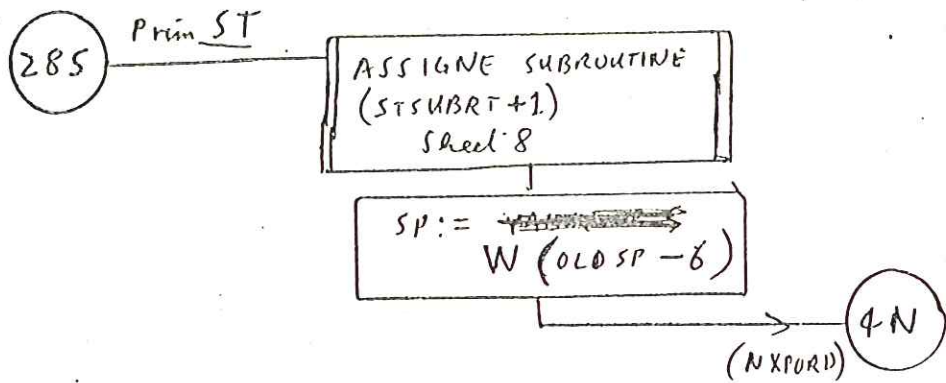 285
Prim ST
ASSIGNE SUBROUTINE
(STSUBRT+1)
Sheet 8
SP:=
W (OLDSP-6)
4N
(NXPORD)